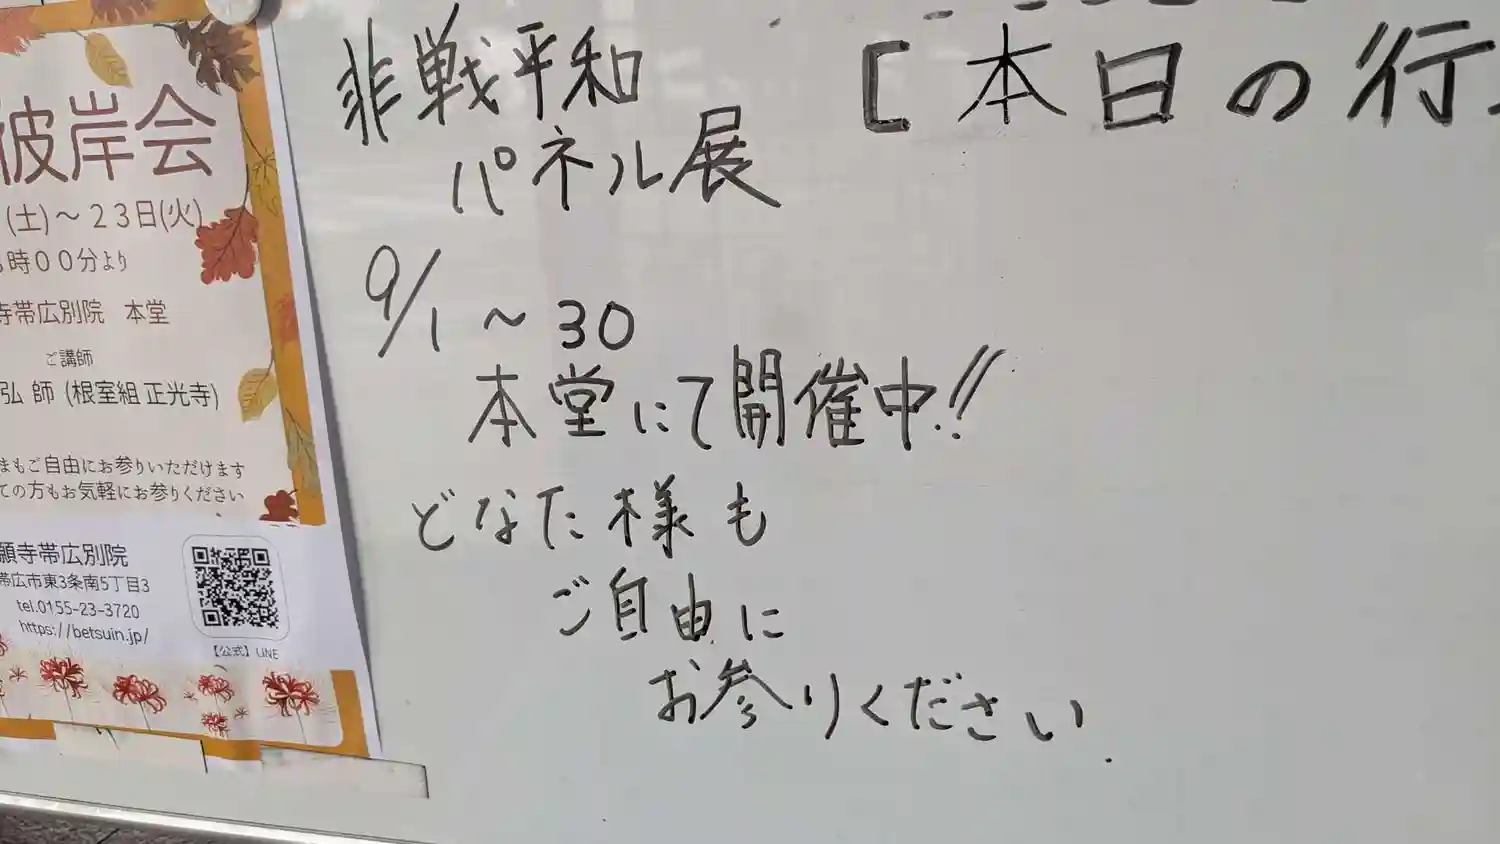 彼岸会
(土)～23日(火)
時00分より
寺帯広別院 本堂
ご講師
弘 師 (根室組 正光寺)
まもご自由にお参りいただけます
ての方もお気軽にお参りください
願寺帯広別院
帯広市東3条南5丁目3
tel.0155-23-3720
https://betsuin.jp/
【公式】LINE
非戦平和
パネル展
9/1 ～ 30
本堂にて開催中!!
どなた様も
ご自由に
お参りください.
[本日の行